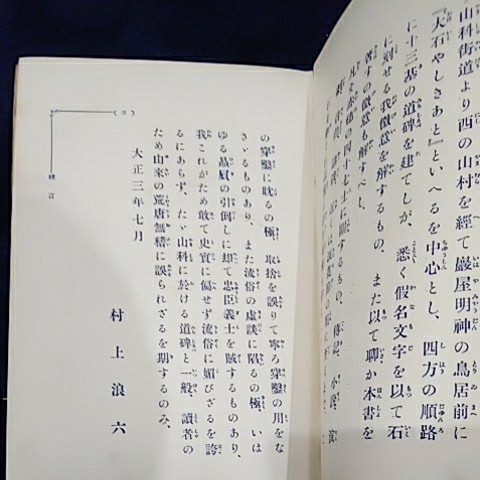 山科街道より西の山村を經て巖屋明神の鳥居前に
『大石やしきあと』といへるを中心とし、四方の順路
に十三基の道碑を建てしが、悉く假名文字を以て石
に刻せる我微意を解するもの、また以て聊か本書を
著すの微意も解すべし。
凡そ赤穗の四十七士に關するもの、傳記、小說、演
の穿鑿に耽るの極、取捨を誤りて寧ろ穿鑿の用をな
さゞるものあり、また流俗の虛談に陷るの極、いは
ゆる贔屓の引倒しに却て忠臣義士を賊するものあり、
我これがため敢て史實に偏せず流俗に媚びざるを誇
るにあらず、たゞ山科に於ける道碑と一般、讀者の
ため由來の荒唐無稽に誤られざるを期するのみ、
大正三年七月
村上浪六